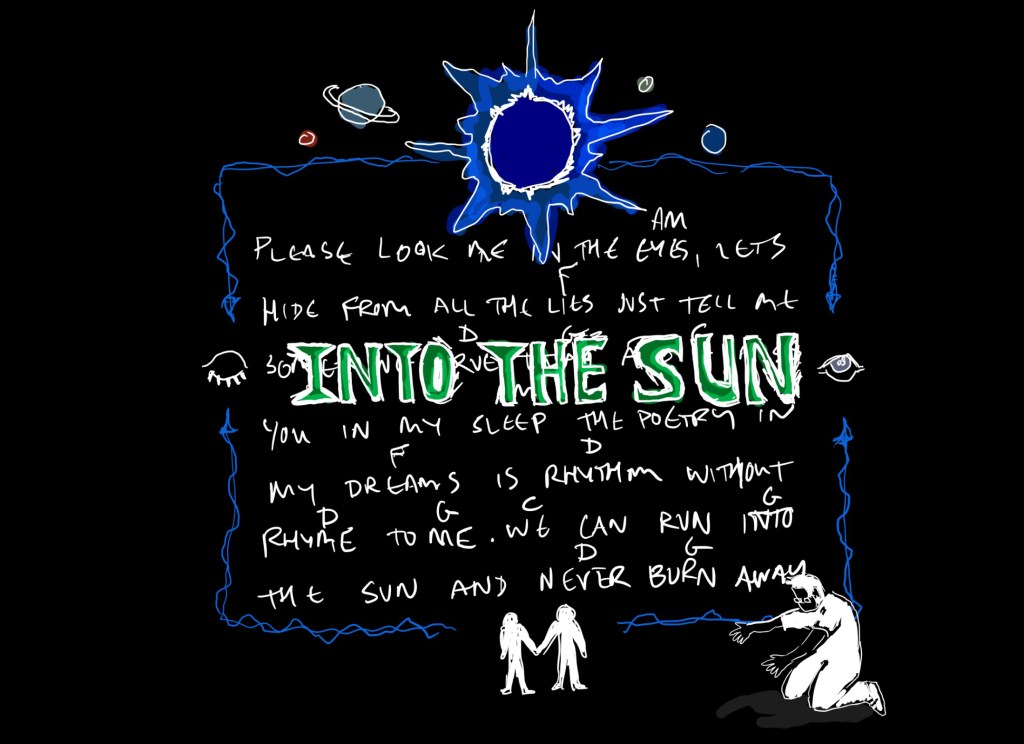 AM
PLEASE LOOK ME IN THE EYES, LETS
F
HIDE FROM ALL THE LIES JUST TELL ME
D
INTO THE SUN
YOU IN MY SLEEP THE POETRY IN
F D
MY DREAMS IS RHYTHM WITHOUT
D G C G
RHYME TO ME. WE CAN RUN INTO
D G
THE SUN AND NEVER BURN AWAY